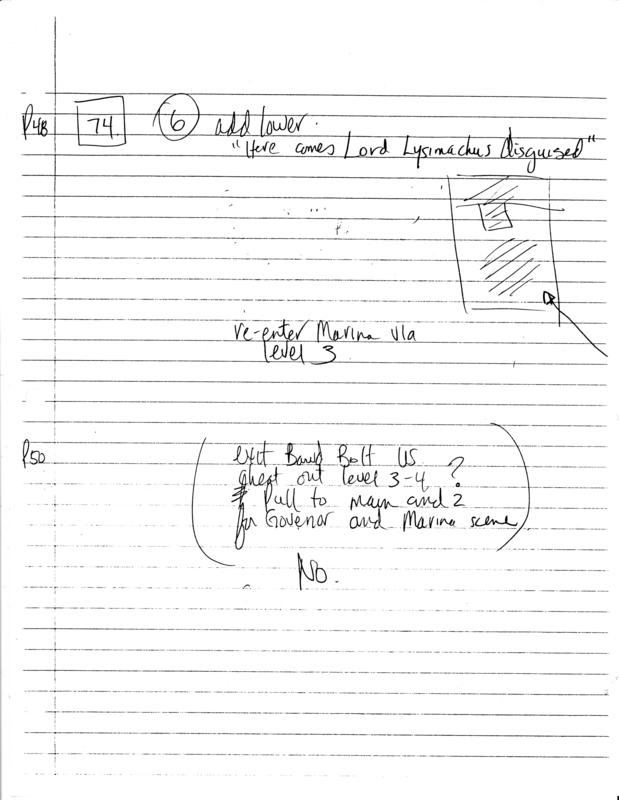 P48 74. 6 add lower.
"Here comes Lord Lysimachus disguised"
re-enter Marina via
level 3
P50
exit Bawd Bolt US
cheat out level 3-4 ?
Pull to main and 2
for Govenor and Marina scene
No.